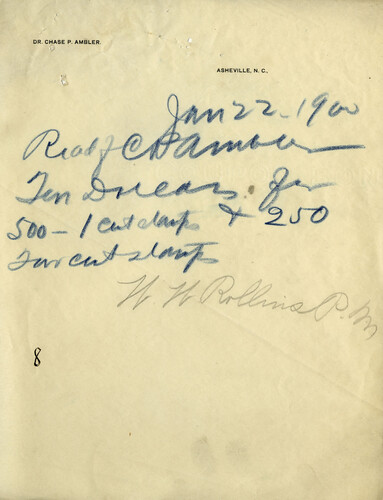 DR. CHASE P. AMBLER.
ASHEVILLE, N. C.,
Jan 22 - 1900
Recd of C P Ambler
Ten Dollars for
500 - 1 cent stamps & 250
Two cent stamps
W W Rollins P. M
8